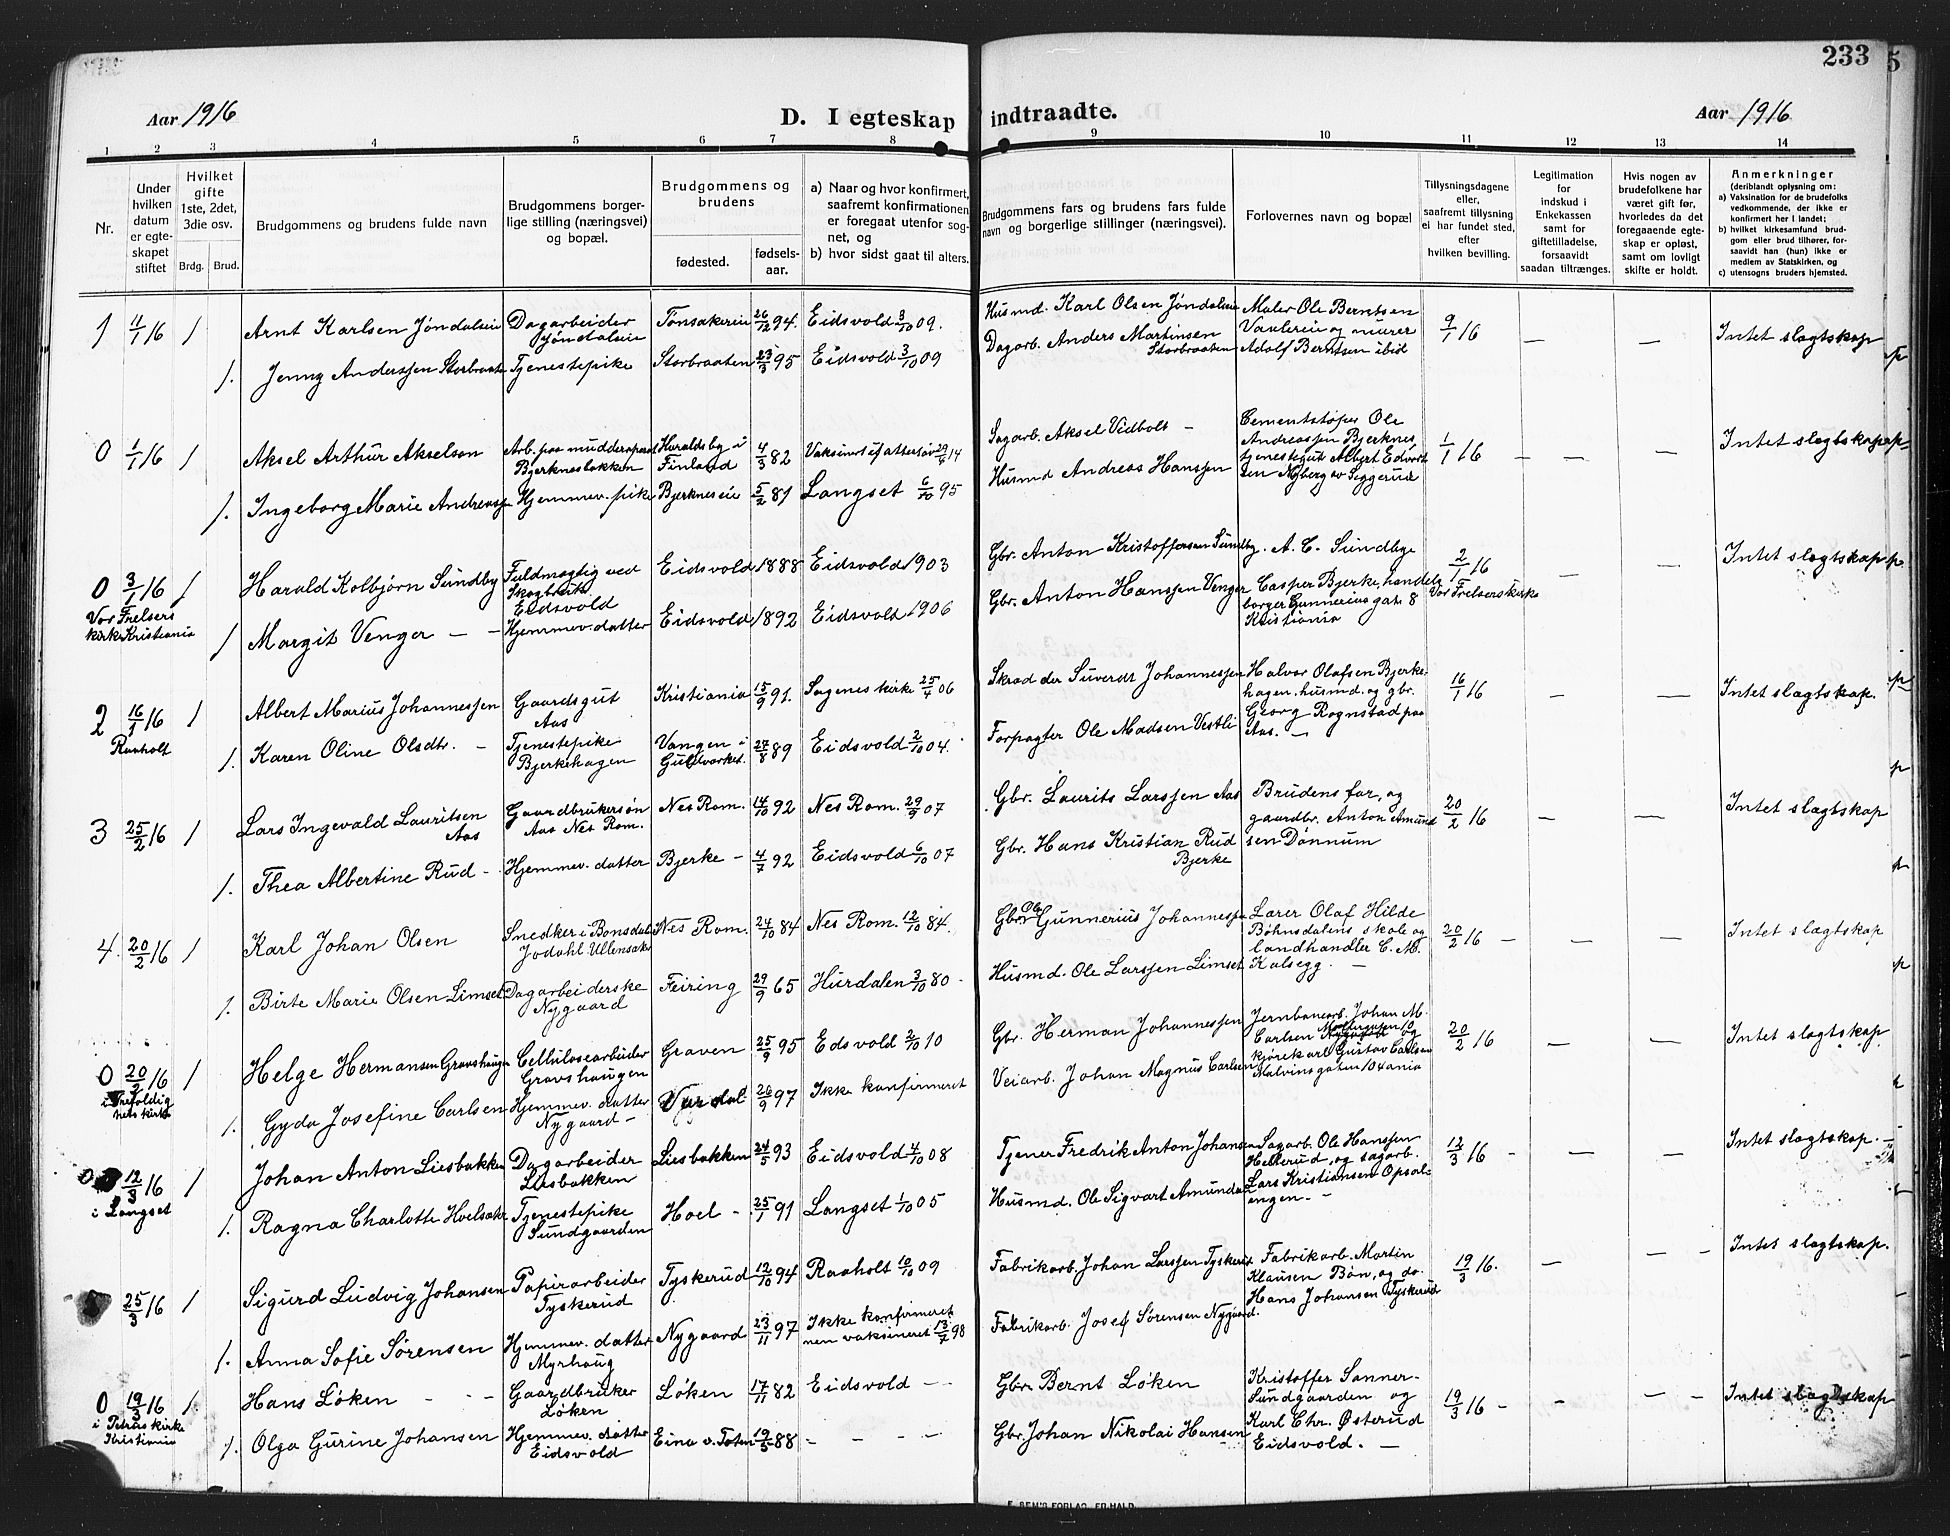 233
5
Aar 1916
D. I egteskap indtraadte.
Aar 1916
1 2 3 4 5 6 7 8 9 10 11 12 13 14
Nr.
Under hvilken datum er egteskapet stiftet
Hvilket gifte 1ste, 2det, 3die osv.
Brdg. Brud.
Brudgommens og brudens fulde navn
Brudgommens borgerlige stilling (næringsvei) og bopæl.
Brudgommens og brudens
fødested.
fødselsaar.
a) Naar og hvor konfirmert, saafremt konfirmationen er foregaat utenfor sognet, og
b) hvor sidst gaat til alters.
Brudgommens fars og brudens fars fulde navn og borgerlige stillinger (næringsvei).
Forlovernes navn og bopæl
Tillysningsdagene eller, saafremt tillysning ei har fundet sted, efter hvilken bevilling.
Legitimation for indskud i Enkekassen samt for giftetilladelse, forsaavidt saadan tiltrænges.
Hvis nogen av brudefolkene har været gift før, hvorledes da det foregaaende egteskap er opløst, samt om lovligt skifte er holdt.
Anmerkninger
(deriblandt oplysning om:
a) Vaksination for de brudefolks vedkommende, der ikke er konfirmert her i landet;
b) hvilket kirkesamfund brudgom eller brud tilhører, forsaavidt han (hun) ikke er medlem av Statskirken, og
c) utensogns bruders hjemsted.
1 11/1 16 1 Arnt Karlsen Jøndalseie Dagarbeider Jøndalseie Tønsakereie 26/12 94. Eidsvold 3/10 09. Husmd. Karl Olsen Jøndalseie Maler Ole Berntsen Vaulereie og murer Adolf Berntsen ibid 9/1 16 — — Intet slagtskap
1. Jenny Anderssen Storbraaten Tjenestepike Storbraaten 23/3 95 Eidsvold 3/10 09 Dagarb. Anders Martinsen Storbraaten
0 1/1 16 1 Aksel Arthur Akselson Arb. paa mudderapparat Bjerknesbakken Haraldsby i Finland 4/3 82 Sagarb. Aksel Vidbolt — Cementstøper Ole Andreassen Bjerknes, tjenestegut Albert Edvartsen Nyberg av Seggerud 1/1 16 — — — Intet slegtskap
1. Ingeborg Marie Andreassen Hjemmev. pike Bjerkneseie 5/2 81 Langset 6/10 95 Husmd Andreas Hanssen
0 3/1 16 1 Harald Kolbjørn Sundby Fuldmægtig ved Skogbruk Eidsvold Eidsvold 1888 Eidsvold 1903 Gbr. Anton Kristoffersen Sundby. A. C. Sundbye 2/1 16 Vor Frelsers kirke — — Intet slagtskap
Vor Frelsers kirke Kristiania
1 Margit Venger — — Hjemmev. datter Eidsvold 1892 Eidsvold 1906 Gbr. Anton Hanssen Venger Casper Bjerke, handelsborger Gunnerius gat. 8 Kristiania
2 16/1 16 1 Albert Marius Johannessen Gaardsgut Aas Kristiania 15/9 91. Sagenes kirke 25/4 06 Skrædder Suverdt Johannessen Halvor Olafsen Bjerkehagen. husmd. og gbr. Georg Rognstad paa Aas. — 16/1 16 — — Intet slagtskap.
Raaholt
1. Karen Oline Olsdtr. — Tjenestepike Bjerkehagen Vangen i Guldverket. 27/8 89 Eidsvold 2/10 04. Forpagter Ole Madsen Vestli
3 25/2 16 1 Lars Ingevald Lauritsen Aas Gaardbrukersøn Aas Nes Rom. Nes Rom. 14/10 92 Nes Rom. 29/9 07 Gbr. Laurits Larssen Aas Brudens far, og gaardbr. Anton Amundsen Dønnum 20/2 16 — — Intet slagtskap
1. Thea Albertine Rud — Hjemmev. datter Bjerke — 4/7 92 Eidsvold 6/10 07 Gbr. Hans Kristian Rud Bjerke
4. 20/2 16 1 Karl Johan Olsen Snedker i Bonsdal Jodahl Ullensaker Nes Rom. 24/10 84 Nes Rom. 12/10 84. Gbr. Ole Gunnerius Johannessen Lærer Olaf Hilde Bøhnsdalens skole og landhandler C. M. Kalsegg. — 20/2 16 — — — Intet slagtskap
1. Birte Marie Olsen Limset Dagarbeiderske Nygaard Feiring 29/9 65 Hurdalen 3/10 80 Husmd. Ole Larssen Limset
0 20/2 16 1 Helge Hermansen Gravshaugen Cellulosearbeider Gravshaugen Graven 25/9 95 Edsvold 2/10 10 Gbr. Herman Johannessen Jernbanearb. Johan M. Carlsen og kjørekarl Gustav Carlsen Malvinsgaten 10 4 ania 20/2 16 — — Intet slagtskap
i Trefoldighets kirke
1. Gyda Josefine Carlsen Hjemmev. datter Nygaard — 20/9 97 Ikke konfirmeret Veiarb. Johan Magnus Carlsen
0 12/3 16 1 Johan Anton Liesbakken Dagarbeider Liesbakken Liesbakken 24/5 93 Eidsvold 4/10 08 Tjener Fredrik Anton Johansen Sagarb. Ole Hanssen Hellerud, og sagarb. Lars Kristiansen Opsalengen. — 12/3 16 — — — Intet slagtskap.
i Langset
1. Ragna Charlotte Hoelsæter Tjenestepike Sundgaarden Hoel — 25/1 91 Langset 1/10 05 Husmd. Ole Sigvart Amundsen
25/3 16 1 Sigurd Ludvig Johansen Papirarbeider Tyskerud Tyskerud 12/10 94 Raaholt 10/10 09 Fabrikarb. Johan Larssen Tyskerud Fabrikarb. Martin Klausen Bøn, og do. Hans Johansen Tyskerud 19/3 16. — — — Intet slagtskap.
1. Anna Sofie Sørensen Hjemmev. datter Myrhaug Nygaard 23/11 97 Ikke konfirmeret men vaksineret 13/7 98 Fabrikarb. Josef Sørensen Nygaard.
0 19/3 16 1 Hans Løken — — Gaardbruker Løken Løken 17/11 82 Eidsvold — — Gbr. Bernt Løken Kristoffer Sanner- Sundgaarden og Karl Chr. Østerud Eidsvold. — 19/3 16 — — — — Intet slagtskap
i Petrus kirke Kristiania
1. Olga Gurine Johansen Hjemmev. datter Eidsvold Eina v. Toten 19/5 88 — — — — Gbr. Johan Nikolai Hansen